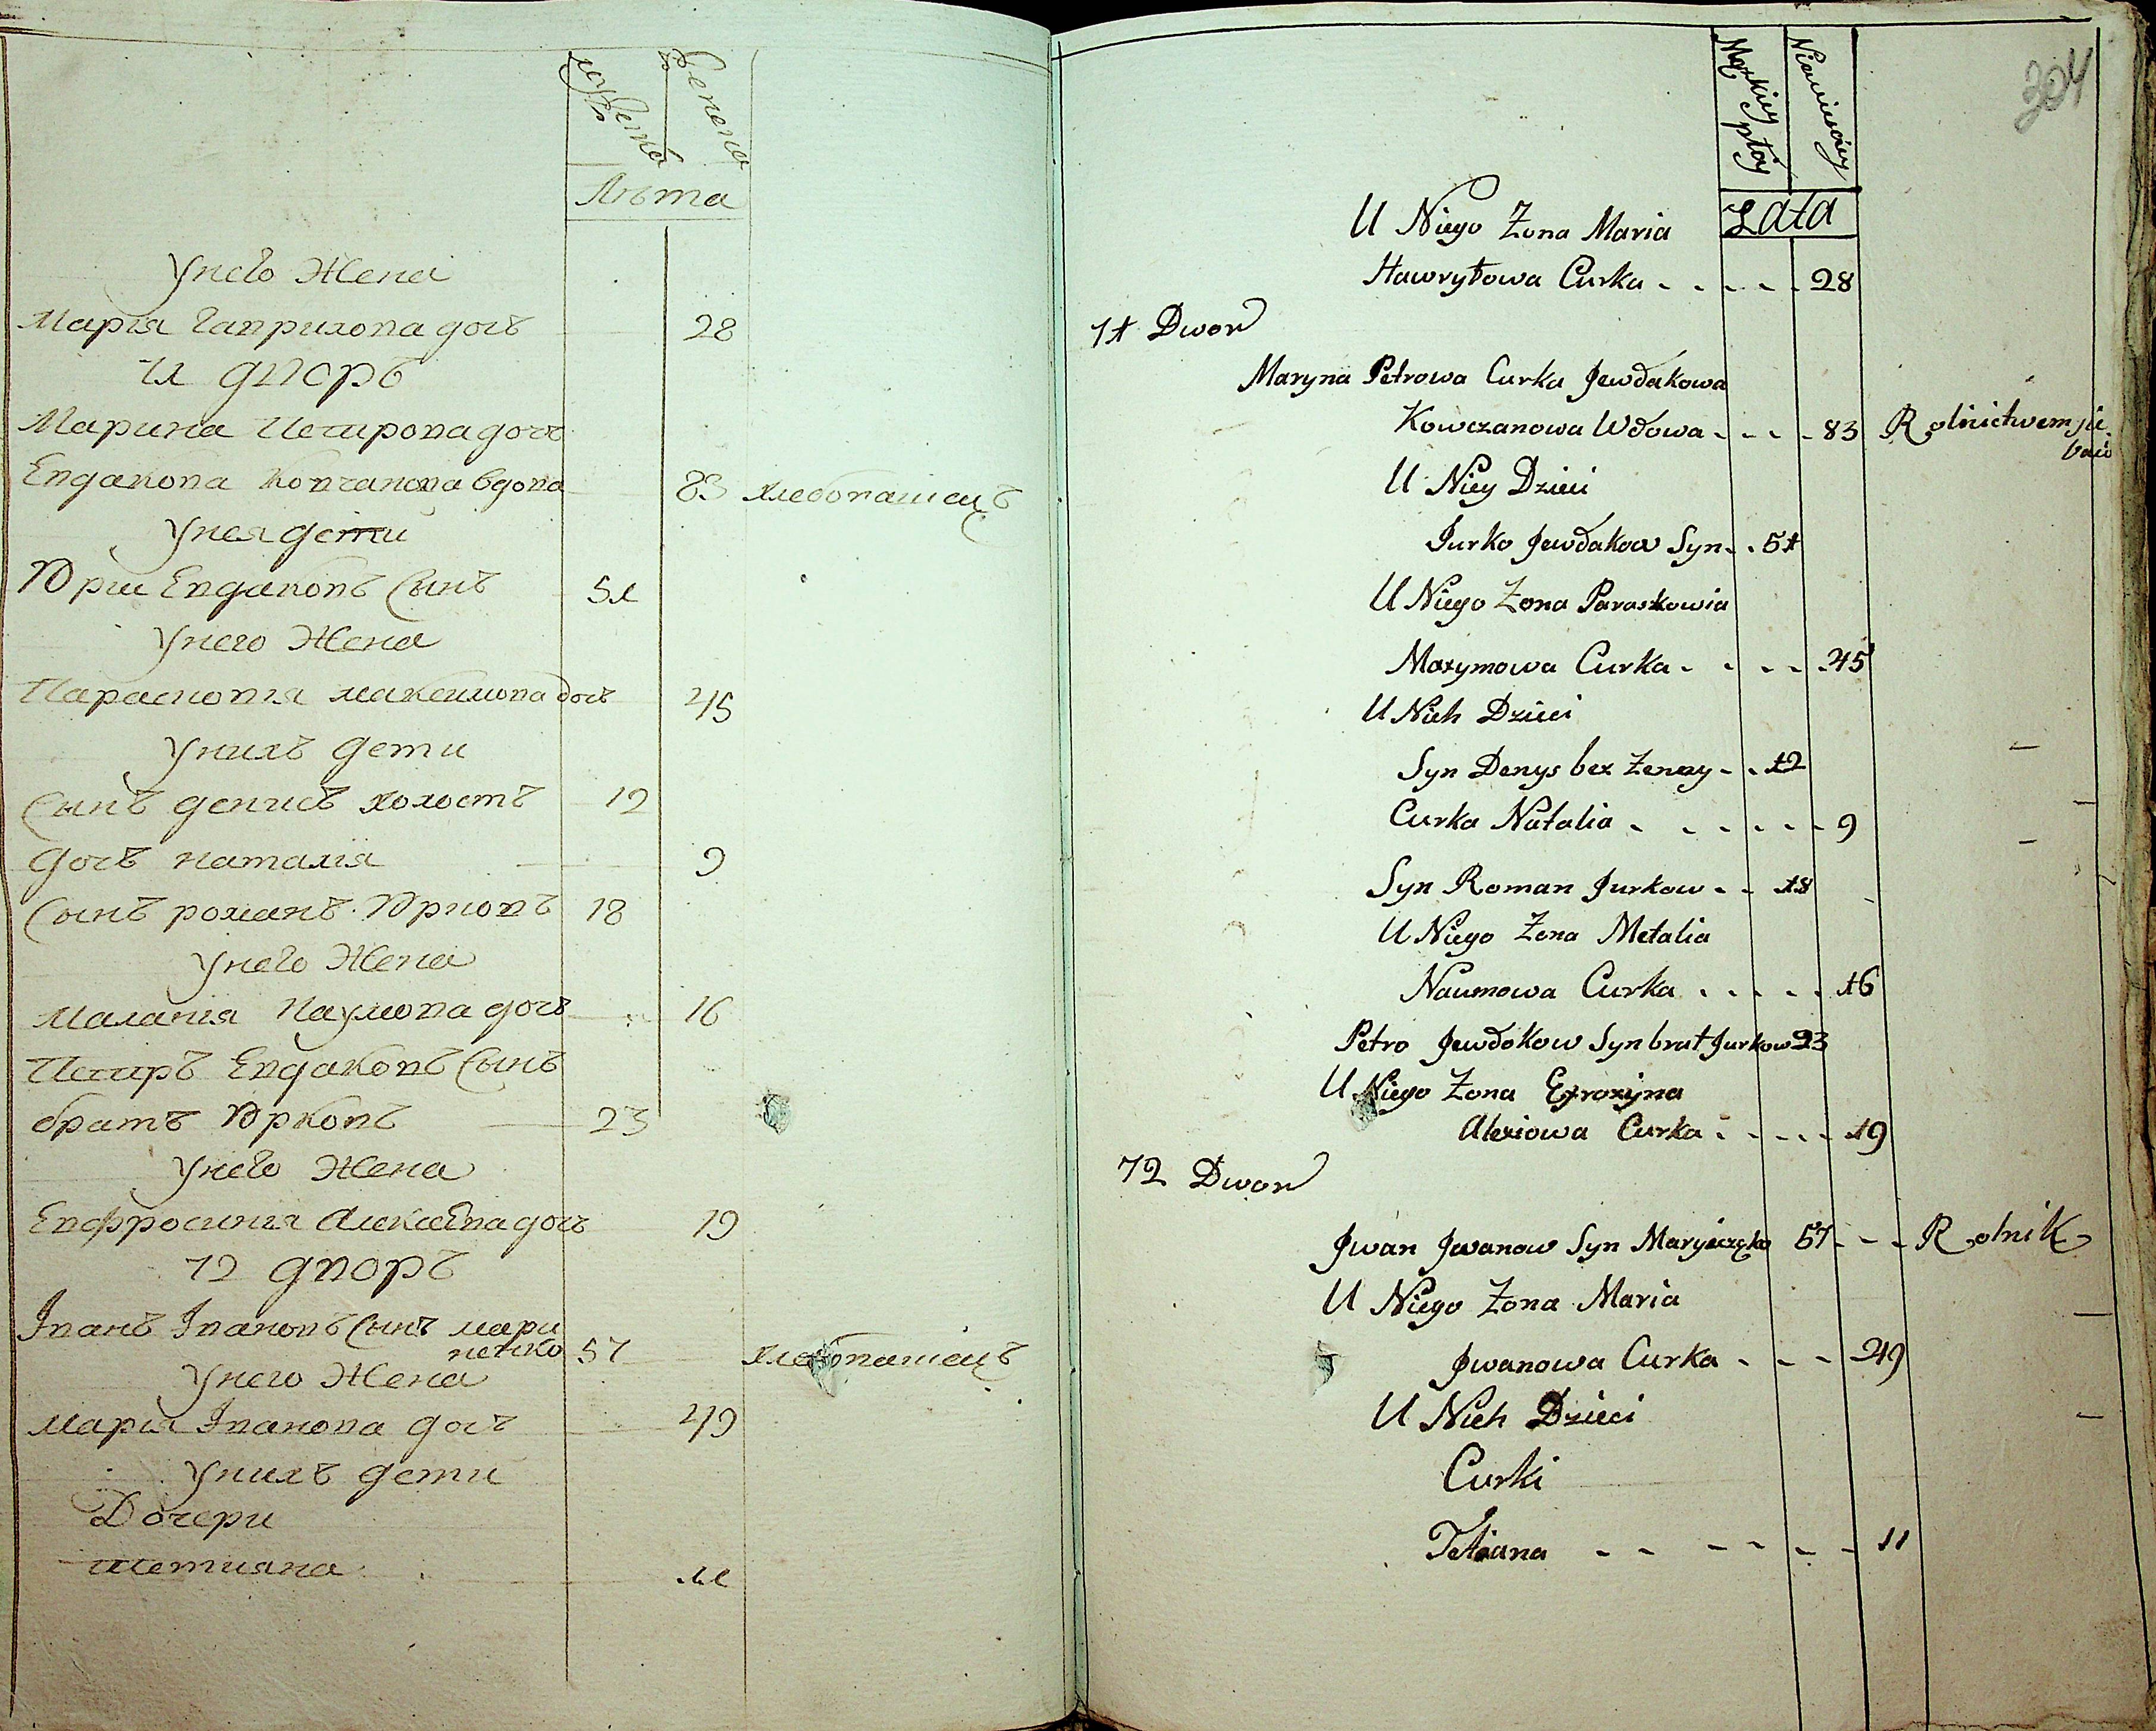 мужеска
женена
Лѣта
У него Жена
Марія Гаврилова дочь 28
71 дворъ
Марина Петрова дочь
Евдакова Ковчанова вдова 83 хлебопашецъ
У нея дети
Юрки Евдаковъ Сынъ 51
У него Жена
Парасковія максимова дочь 45
У нихъ дети
Сынъ денисъ холостъ 12
дочь наталія 9
Сынъ романъ Юрковъ 18
У него Жена
маланія Наумова дочь 16
Петръ Евдаковъ Сынъ
братъ Юрковъ 23
У него Жена
Евфросинія Алексѣева дочь 19
72 дворъ
Іванъ Івановъ Сынъ мари
ненко 57 хлебопашецъ
У него Жена
марія Іванова дочь 49
У нихъ дети
Дочери
тетияна 11
304
Mązkiey płci
Niewieściey
Lata
U Niego Zona Maria
Hawryłowa Curka - - - - - 28
71 Dwor
Maryna Petrowa Curka Jewdakowa
Kowczanowa Wdowa - - - - 83 Rolnictwem się
bawi
U Niey Dzieci
Jurko Jewdakow Syn - - 51
U Niego Zona Paraskowia
Maxymowa Curka - - - - - 45
U Nich Dzieci
Syn Denys bez Zenny - - 12
Curka Natalia - - - - - - 9
Syn Roman Jurkow - - 18
U Niego Zona Metalia
Naumowa Curka - - - - - 16
Petro Jewdokow Syn brat Jurkow 23
U Niego Zona Efrozyna
Alexiowa Curka - - - - - 19
72 Dwor
Jwan Jwanow Syn Maryniczęko 57 - - - Rolnik
U Niego Zona Maria
Jwanowa Curka - - - - 49
U Nich Dzieci
Curki
Tetiana - - - - - - 11